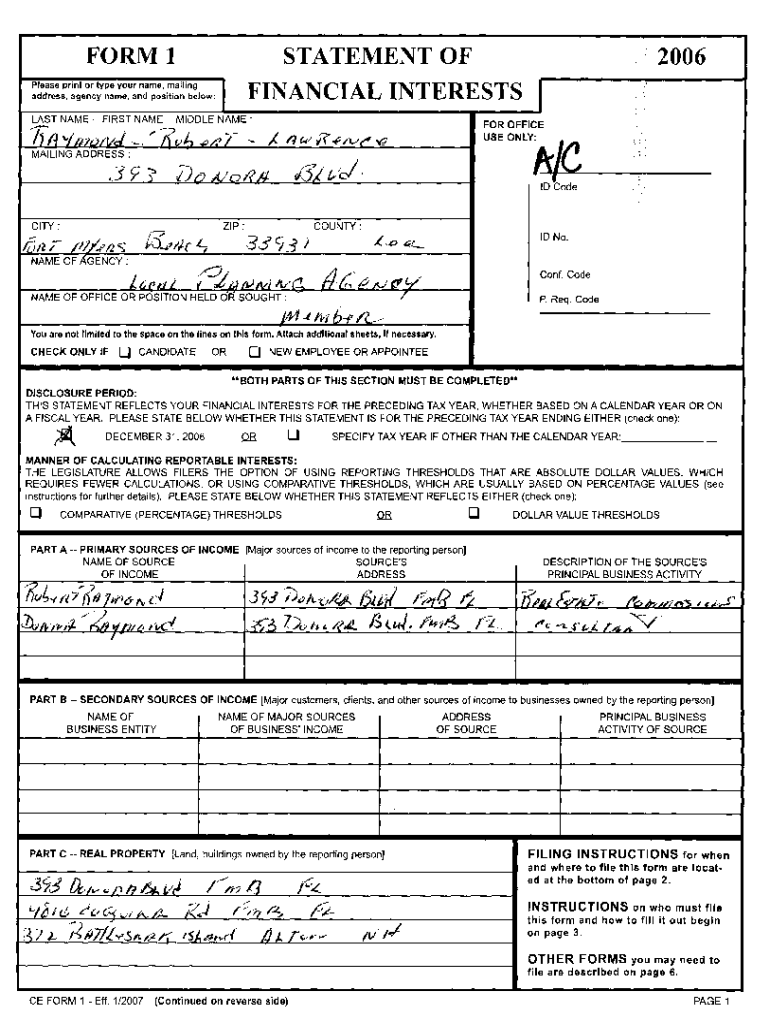 FORM 1
STATEMENT OF
FINANCIAL INTERESTS
2006
Please print or type your name, mailing
address, agency name, and position below:
LAST NAME - FIRST NAME MIDDLE NAME :
RAYMOND - Robert - LAWRENCE
MAILING ADDRESS :
393 DONORA BLVD.
CITY : ZIP : COUNTY :
FORT MYERS Beach 33931 Lee
NAME OF AGENCY :
Local Planning Agency
NAME OF OFFICE OR POSITION HELD OR SOUGHT :
Member
FOR OFFICE
USE ONLY:
A/C
ID Code
ID No.
Conf. Code
P. Req. Code
You are not limited to the space on the lines on this form. Attach additional sheets, if necessary.
CHECK ONLY IF CANDIDATE OR NEW EMPLOYEE OR APPOINTEE
**BOTH PARTS OF THIS SECTION MUST BE COMPLETED**
DISCLOSURE PERIOD:
THIS STATEMENT REFLECTS YOUR FINANCIAL INTERESTS FOR THE PRECEDING TAX YEAR, WHETHER BASED ON A CALENDAR YEAR OR ON
A FISCAL YEAR. PLEASE STATE BELOW WHETHER THIS STATEMENT IS FOR THE PRECEDING TAX YEAR ENDING EITHER (check one):
DECEMBER 31, 2006 OR SPECIFY TAX YEAR IF OTHER THAN THE CALENDAR YEAR:
MANNER OF CALCULATING REPORTABLE INTERESTS:
THE LEGISLATURE ALLOWS FILERS THE OPTION OF USING REPORTING THRESHOLDS THAT ARE ABSOLUTE DOLLAR VALUES, WHICH
REQUIRES FEWER CALCULATIONS, OR USING COMPARATIVE THRESHOLDS, WHICH ARE USUALLY BASED ON PERCENTAGE VALUES (see
instructions for further details). PLEASE STATE BELOW WHETHER THIS STATEMENT REFLECTS EITHER (check one):
COMPARATIVE (PERCENTAGE) THRESHOLDS OR DOLLAR VALUE THRESHOLDS
PART A -- PRIMARY SOURCES OF INCOME [Major sources of income to the reporting person]
NAME OF SOURCE SOURCE'S DESCRIPTION OF THE SOURCE'S
OF INCOME ADDRESS PRINCIPAL BUSINESS ACTIVITY
Robert Raymond 393 Donora Blvd FmB FL Real Estate Commissions
Donna Raymond 393 Donora Blvd. FmB FL Consultant
PART B -- SECONDARY SOURCES OF INCOME [Major customers, clients, and other sources of income to businesses owned by the reporting person]
NAME OF NAME OF MAJOR SOURCES ADDRESS PRINCIPAL BUSINESS
BUSINESS ENTITY OF BUSINESS' INCOME OF SOURCE ACTIVITY OF SOURCE
PART C -- REAL PROPERTY [Land, buildings owned by the reporting person]
393 Donora Blvd FmB FL
Rd FmB FL
372 Rattlesnake Island Alton NH
FILING INSTRUCTIONS for when
and where to file this form are locat-
ed at the bottom of page 2.
INSTRUCTIONS on who must file
this form and how to fill it out begin
on page 3.
OTHER FORMS you may need to
file are described on page 6.
CE FORM 1 - Eff. 1/2007 (Continued on reverse side) PAGE 1